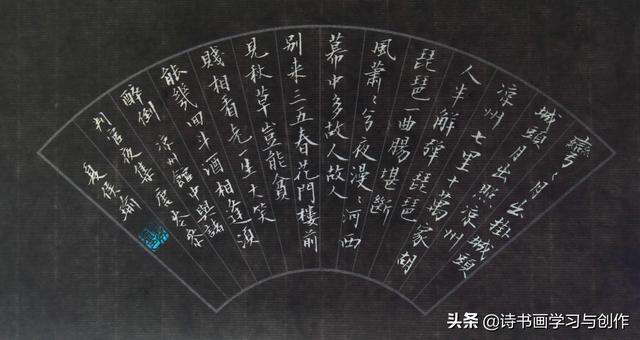 彎〻月出掛城頭
城頭月出照涼州
涼州七里十萬家胡
人半解彈琵琶
琵琶一曲腸堪斷
風蕭〻兮夜漫〻河西
幕中多故人故人
別來三五春花門樓前
見秋草豈能貧
賤相看老一生大笑
能幾回斗酒相逢須
醉倒 涼州館中與諸
判官夜集 唐岑參
夏侯瑜
头条 @诗书画学习与创作